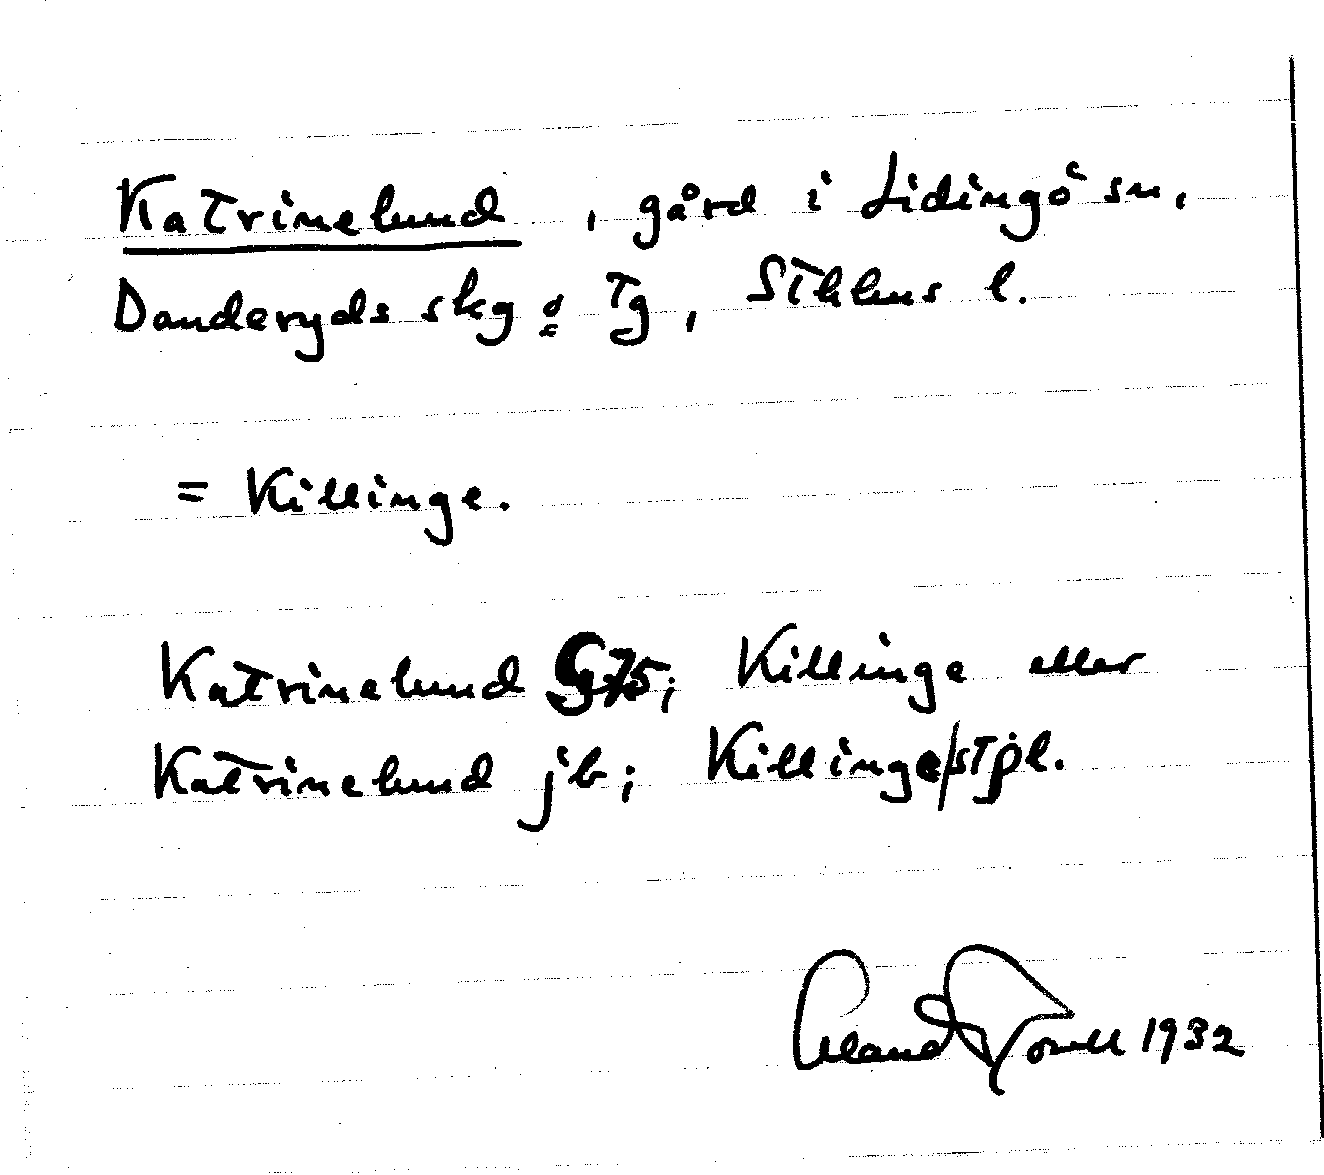 Katrinelund, gård i Lidingö sn,
Danderyds skg o Tg, Sthlms l.
= Killinge.
Katrinelund G75; Killinge eller
Katrinelund jb; Killinge/stpl.
1932